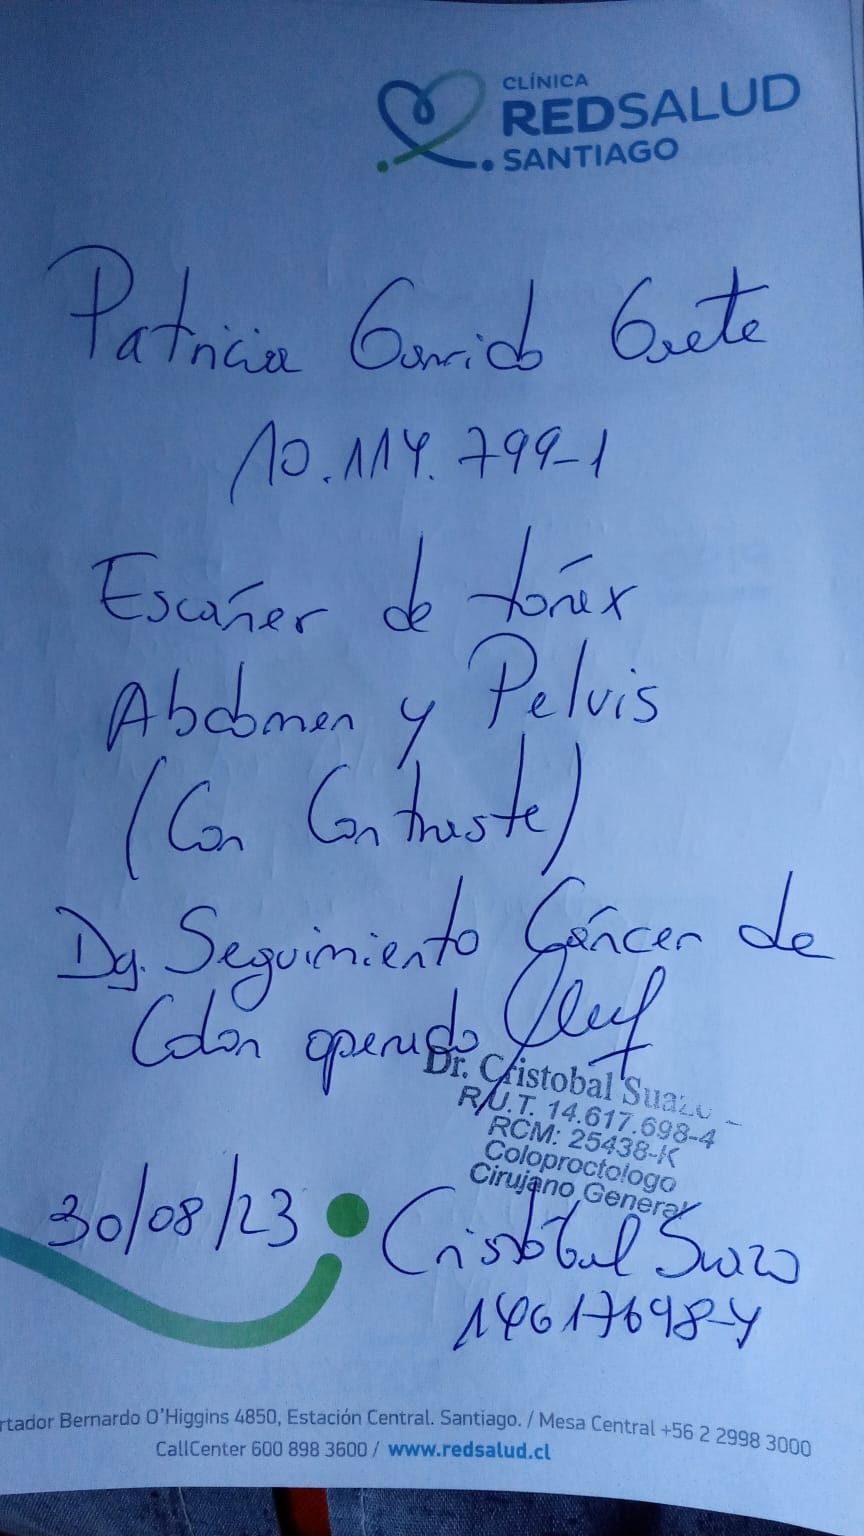 CLÍNICA
REDSALUD
SANTIAGO
Patricia Garrido
10.114.799-1
Escáner de tórax
Abdomen y Pelvis
(Con Contraste)
Dg. Seguimiento Cáncer de
Colon operado
Dr. Cristobal Suazo
R.U.T. 14.617.698-4
RCM: 25438-K
Coloproctologo
Cirujano General
30/08/23
Cristóbal Suazo
14617698-4
rtador Bernardo O'Higgins 4850, Estación Central. Santiago. / Mesa Central +56 2 2998 3000
CallCenter 600 898 3600 / www.redsalud.cl